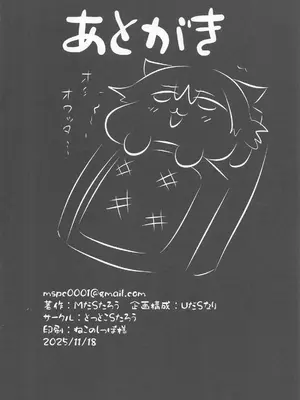 あとがき
オ～
オワッタ…
mspc0001@gmail.com
著作：MだSたろう 企画構成：UだSなり
サークル：とっとこSたろう
印刷：ねこのしっぽ様
2025/11/18